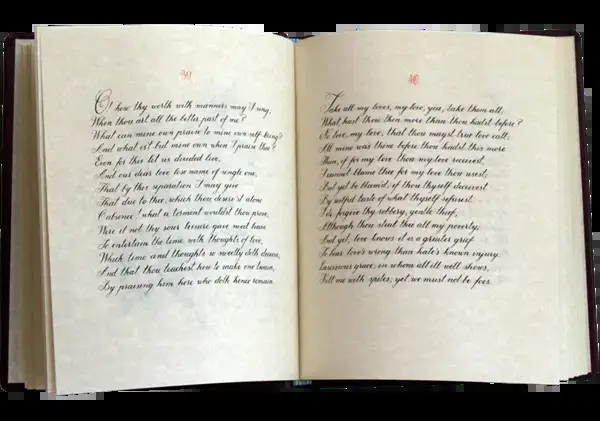 39
O! how thy worth with manners may I sing,
When thou art all the better part of me?
What can mine own praise to mine own self bring?
And what is't but mine own when I praise thee?
Even for this let us divided live,
And our dear love lose name of single one,
That by this separation I may give
That due to thee, which thou deserv'st alone.
O absence! what a torment wouldst thou prove,
Were it not thy sour leisure gave sweet leave
To entertain the time with thoughts of love,
Which time and thoughts so sweetly doth deceive,
And that thou teachest how to make one twain,
By praising him here who doth hence remain.
40
Take all my loves, my love, yea, take them all;
What hast thou then more than thou hadst before?
No love, my love, that thou mayst true love call;
All mine was thine before thou hadst this more.
Then, if for my love thou my love receivest,
I cannot blame thee for my love thou usest;
But yet be blam'd, if thou thyself deceivest
By wilful taste of what thyself refusest.
I do forgive thy robbery, gentle thief,
Although thou steal thee all my poverty;
And yet, love knows it is a greater grief
To bear love's wrong than hate's known injury.
Lascivious grace, in whom all ill well shows,
Kill me with spites; yet we must not be foes.